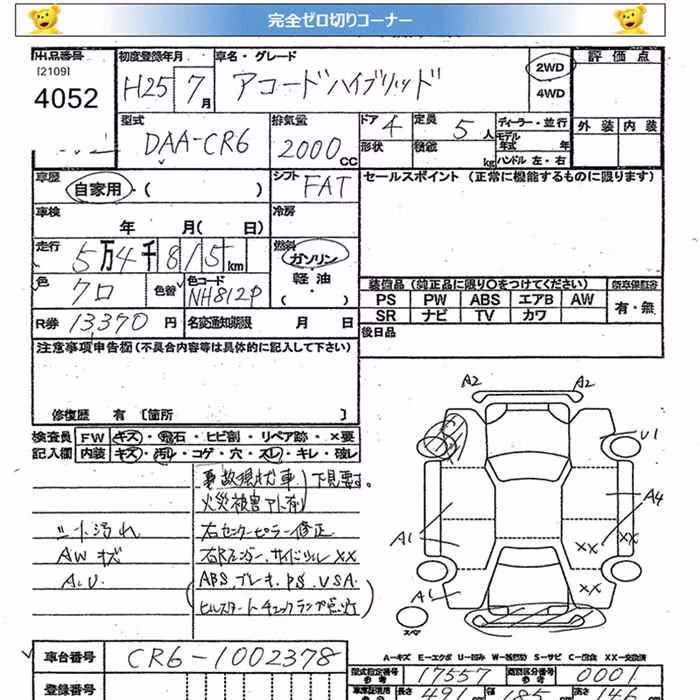 完全ゼロ切りコーナー
出品番号 初度登録年月 車名・グレード 評価点
[2109]
4052
H25 7月 アコードハイブリッド 2WD
4WD
外装 内装
型式 排気量 ドア 4 定員 5人 ディーラー・並行
DAA-CR6 2000CC 形状 積載 kg モデル年式 年
ハンドル 左・右
車歴 自家用・( ) シフト FAT セールスポイント (正常に機能するものに限ります)
車検 年 月( 日) 冷房
走行 5万4千815km 燃料 ガソリン
軽油
( )
色 クロ 色替 色コード NH812P 装備品 (純正品に限り○をつけてください)
PS PW ABS エアB AW 有・無
SR ナビ TV カワ
R券 13,370円 名変通知期限 月 日 後日品
注意事項申告欄(不具合内容等は具体的に記入して下さい)
修復歴 有 [箇所 ]
検査員 FW キズ・飛石・ヒビ割・リペア跡・×要
記入欄 内装 キズ・汚レ・コゲ・穴・スレ・キレ・破レ
事故現状車 下見要す。
火災被害アト有り
シート汚れ 右センターピラー修正
AWキズ 右Rフェンダー、サイドシル XX
A.U. (ABS、ブレーキ、PS、VSA、
ヒルスタートチェックランプ点灯)
A2 A2
U1
A4
A1
XX XX
XX
A1
スペア
A-キズ E-エクボ U-凹み W-波板 S-サビ C-腐食 XX-交換済
車台番号 CR6-1002378
型式指定番号 17557 類別区分番号 0001
参考 参考
登録番号
長さ 幅 高さ